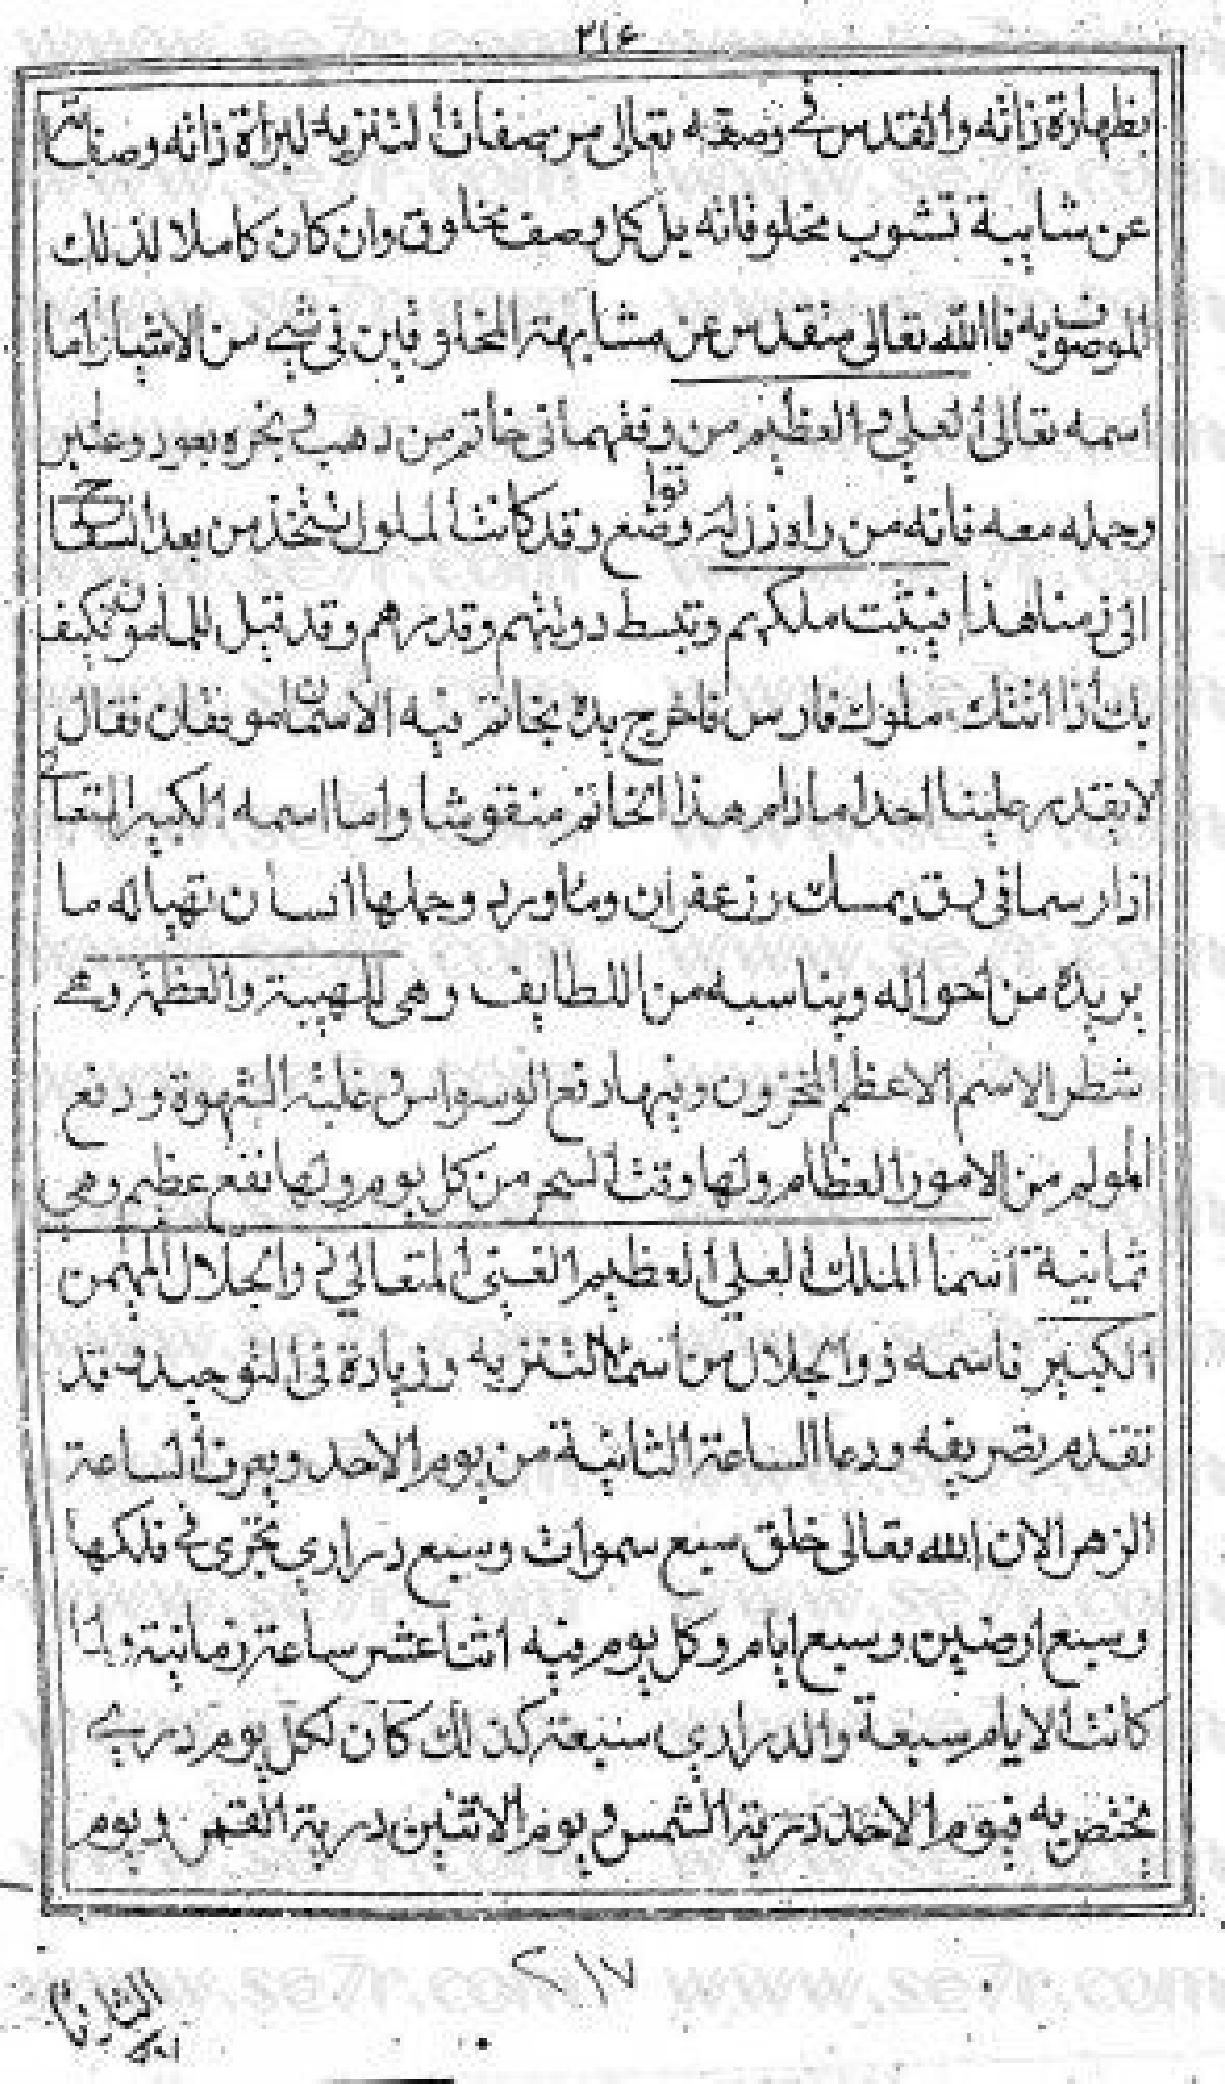 ٣١٤
بطهارة ذاته والقدس في وصفه تعالى من صفات التنزيه لبراة ذاته وصفاته
عن شايبة تشوب مخلوقاته بل كل وصف مخلوق وان كان كاملا لذلك
الموصوف به فالله تعالى منقدس عن مشابهة المخلوقين في شي من الاشيا واما
اسمه تعالى العلي و العظيم من وفقهما في خاتم من ذهب و بخره بعود وعنبر
وحمله معه فانه من راه ذل له وضع توا وقد كانت الملوك تتخذ من بعد
الى زمنا هذا فيثبت ملكهم وتبسط دولتهم وقدرهم وقد قيل للمامون كيف
بك اذا اتتك ملوك فارس فاخرج يده بخاتم فيه الاسمان موفقان فقال
لا يقدر علينا احدا ما دام هذا الخاتم منقوشا واما اسمه الكبير المتعالي
اذا رسما في رق بمسك وزعفران وما ورد وحملها انسان تهيا له ما
يريده من احواله ويناسبه من اللطايف وهي للهيبة والعظمة وهي
شطر الاسم الاعظم المخزون وفيها دفع الوسواس و غلبة الشهوة ودفع
المولم من الامور العظام ولها وقت السحر من كل يوم ولها نفع عظيم وهي
ثمانية اسما الملك العلي العظيم الغني المتعالي ذو الجلال المهيمن
الكبير فاسمه ذوا الجلال من اسما التنزيه وزيادة في التوحيد وقد
تقدم تصريفه ودعا الساعة الثانية من يوم الاحد ويعرف الساعة
الزهرا لان الله تعالى خلق سبع سموات وسبع دراري تجري في فلكها
وسبع ارضين وسبع ايام وكل يوم فيه اثنا عشر ساعة زمانية واذا
كانت الايام سبعة والدراري سبعة كذلك كان لكل يوم دري
يختص به فيوم الاحد درية الشمس و يوم الاثنين درية القمر ويوم
٢١٧